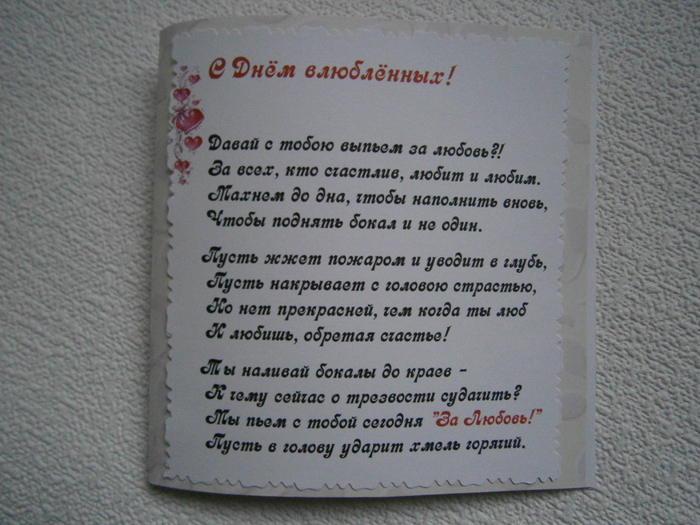 С Днём влюблённых!
Давай с тобою выпьем за любовь?!
За всех, кто счастлив, любит и любим.
Махнем до дна, чтобы наполнить вновь,
Чтобы поднять бокал и не один.
Пусть жжет пожаром и уводит в глубь,
Пусть накрывает с головою страстью,
Но нет прекрасней, чем когда ты люб
И любишь, обретая счастье!
Ты наливай бокалы до краев -
К чему сейчас о трезвости судачить?
Мы пьем с тобой сегодня "За Любовь!"
Пусть в голову ударит хмель горячий.